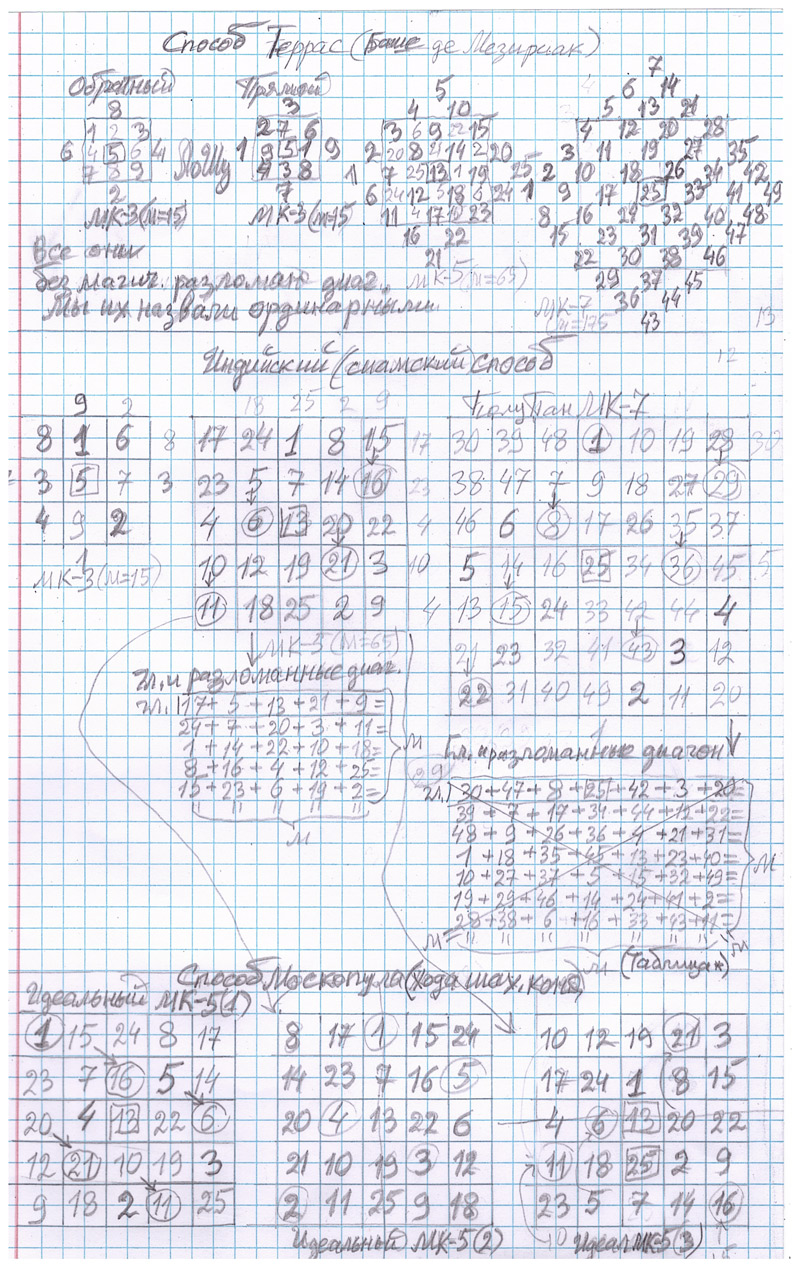 Способ Террас (Баше де Мезириак)
Обратный Прямой
8
1 2 3
6 4 5 6 4
7 8 9
2
МК-3 (М=15)
Ло Шу
3
2 7 6
1 9 5 1 9
4 3 8
7
МК-3 (М=15
5
4 10
3 6 9 22 15
2 20 8 21 14 2 20
1 7 25 13 1 19 25
6 24 12 5 18 6 24
11 4 17 10 23
16 22
21
МК-5 (М=65)
7
6 14
5 13 21
4 12 20 28
3 11 19 27 35
2 10 18 26 34 42
1 9 17 25 33 41 49
8 16 24 32 40 48
15 23 31 39 47
22 30 38 46
29 37 45
36 44
43
МК-7
(М=175
Все они
без магич. разломан диаг.
Мы их назвали ординарными
13
12
Индийский (сиамский) способ
9 2
8 1 6 8
3 5 7 3
4 9 2
1
МК-3 (М=15)
18 25 2 9
17 24 1 8 15 17
23 5 7 14 16 23
4 6 13 20 22 4
10 12 19 21 3 10
11 18 25 2 9
МК-5 (М=65)
Гл. и разломанные диаг.
гл. 17+5+13+21+9=
24+7+20+3+11=
1+14+22+10+18=
8+16+4+12+25=
15+23+6+19+2=
" " " " "
М
М
ПолуПан МК-7
30 39 48 1 10 19 28 30
38 47 7 9 18 27 29
46 6 8 17 26 35 37
5 14 16 25 34 36 45 5
4 13 15 24 33 42 44 4
21 23 32 41 43 3 12
22 31 40 49 2 11 20
Гл. и разломанные диагон
гл.) 30+47+8+25+42+3+20=
39+7+17+34+44+12+22=
48+9+26+36+4+21+31=
1+18+35+45+13+23+40=
10+27+37+5+15+32+49=
19+29+46+14+24+41+2=
28+38+6+16+33+43+11=
М= " " " " " "
М
М
М (Таблица*)
Способ Москопула (хода шах. коня)
Идеальный МК-5(1)
1 15 24 8 17
23 7 16 5 14
20 4 13 22 6
12 21 10 19 3
9 18 2 11 25
8 17 1 15 24
14 23 7 16 5
20 4 13 22 6
21 10 19 3 12
2 11 25 9 18
Идеальный МК-5(2)
10 12 19 21 3
17 24 1 8 15
4 6 13 20 22
11 18 25 2 9
23 5 7 14 16
Идеал МК-5(3)